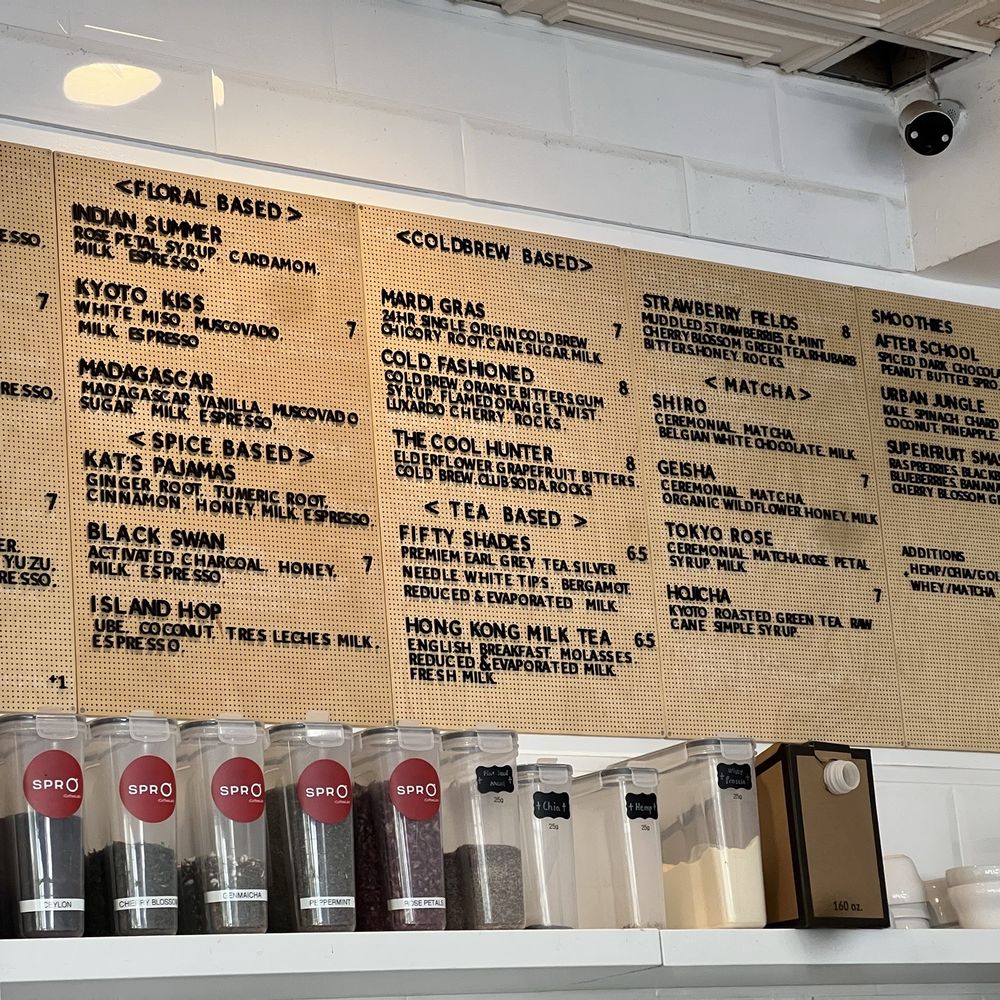 ESSO.
7
RESSO.
7
ER.
YUZU.
RESSO.
+1
<FLORAL BASED>
INDIAN SUMMER
ROSE PETAL SYRUP. CARDAMOM.
MILK. ESPRESSO.
KYOTO KISS
WHITE MISO. MUSCOVADO 7
MILK. ESPRESSO
MADAGASCAR
MADAGASCAR VANILLA. MUSCOVADO
SUGAR. MILK. ESPRESSO.
<SPICE BASED>
KAT'S PAJAMAS
GINGER ROOT. TUMERIC ROOT.
CINNAMON. HONEY. MILK. ESPRESSO
BLACK SWAN
ACTIVATED CHARCOAL. HONEY. 7
MILK. ESPRESSO
ISLAND HOP
UBE. COCONUT. TRES LECHES MILK.
ESPRESSO.
<COLDBREW BASED>
MARDI GRAS
24HR SINGLE ORIGIN COLD BREW 7
CHICORY ROOT. CANE SUGAR. MILK.
COLD FASHIONED
COLD BREW. ORANGE BITTERS GUM 8
SYRUP. FLAMED ORANGE TWIST
LUXARDO CHERRY. ROCKS.
THE COOL HUNTER
ELDERFLOWER GRAPEFRUIT BITTERS. 8
COLD BREW. CLUB SODA. ROCKS
< TEA BASED >
FIFTY SHADES
PREMIEM EARL GREY TEA. SILVER 6.5
NEEDLE WHITE TIPS. BERGAMOT.
REDUCED & EVAPORATED MILK.
HONG KONG MILK TEA 6.5
ENGLISH BREAKFAST. MOLASSES.
REDUCED & EVAPORATED MILK.
FRESH MILK.
STRAWBERRY FIELDS 8
MUDDLED STRAWBERRIES & MINT
CHERRY BLOSSOM GREEN TEA. RHUBARB
BITTERS. HONEY. ROCKS.
<MATCHA>
SHIRO
CEREMONIAL MATCHA.
BELGIAN WHITE CHOCOLATE. MILK.
GEISHA 7
CEREMONIAL MATCHA.
ORGANIC WILDFLOWER. HONEY. MILK
TOKYO ROSE
CEREMONIAL MATCHA. ROSE PETAL
SYRUP. MILK.
HOJICHA 7
KYOTO ROASTED GREEN TEA. RAW
CANE SIMPLE SYRUP.
SMOOTHIES
AFTER SCHOOL
SPICED DARK CHOCOLA
PEANUT BUTTER. SPRO
URBAN JUNGLE
KALE. SPINACH. CHARD
COCONUT. PINEAPPLE.
SUPERFRUIT SMAS
RASPBERRIES. BLACK
BLUEBERRIES. BANAN
CHERRY BLOSSOM G
ADDITIONS
.HEMP/CHIA/GOJ
WHEY/MATCHA
SPRO
CEYLON
SPRO
CHERRY BLOSSOM
SPRO
GENMAICHA
SPRO
PEPPERMINT
SPRO
ROSE PETALS
Flax Seed
Meal
25g
Chia
25g
Hemp
25g
Whey
Protein
160 oz.